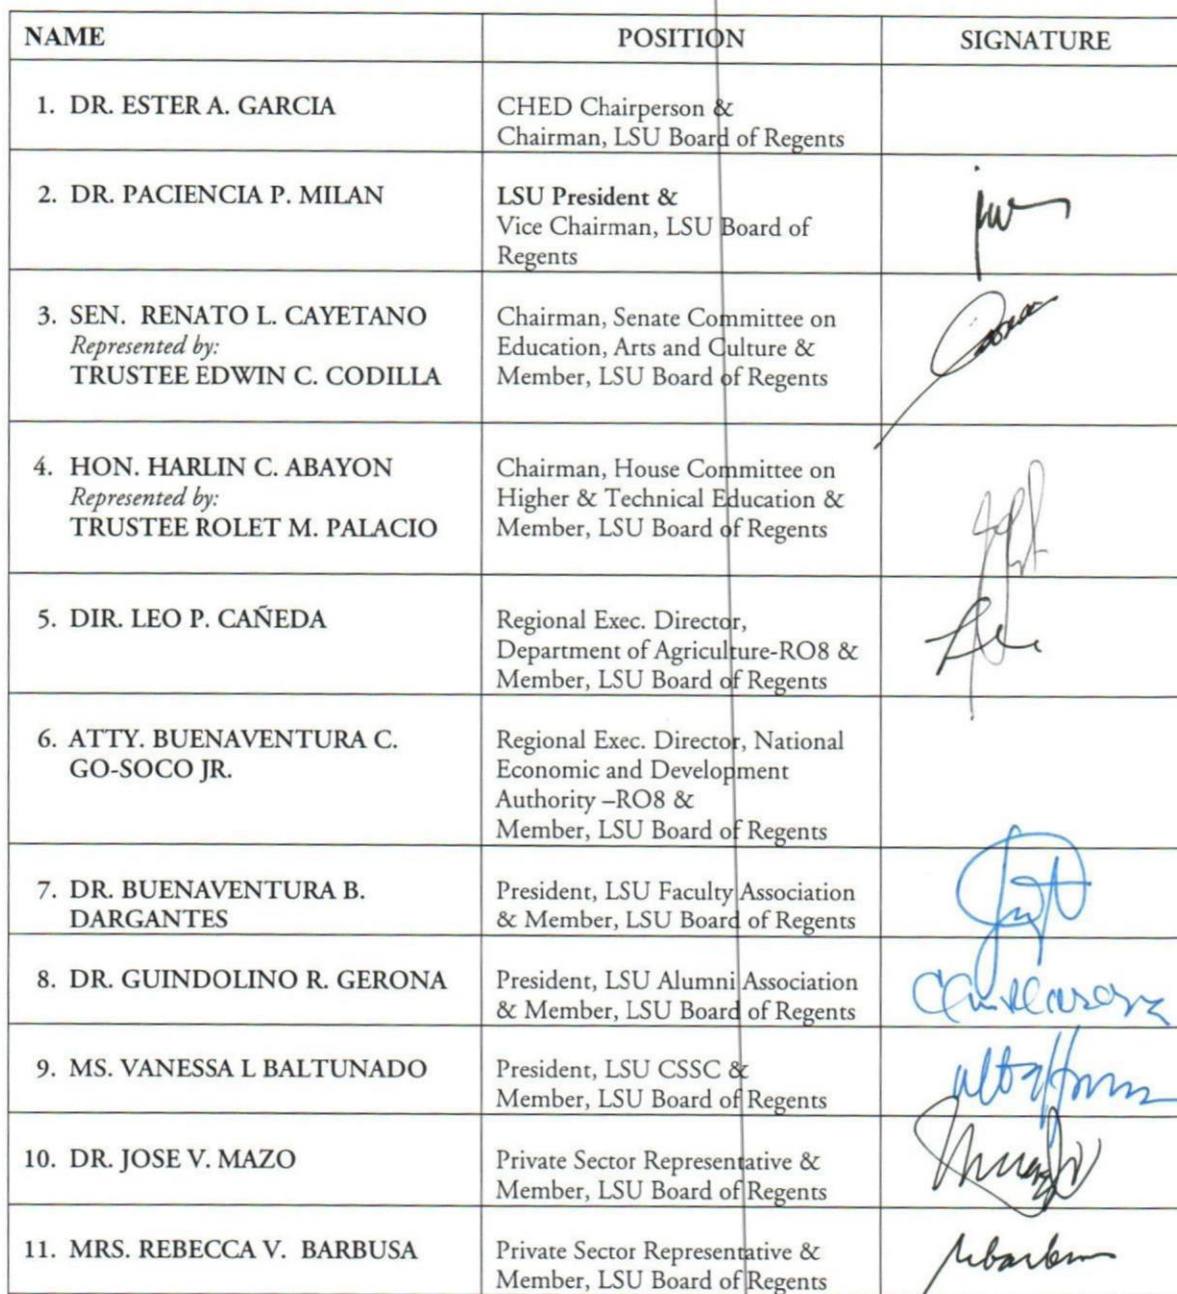 NAME POSITION SIGNATURE
1. DR. ESTER A. GARCIA
CHED Chairperson &
Chairman, LSU Board of Regents
2. DR. PACIENCIA P. MILAN
LSU President &
Vice Chairman, LSU Board of
Regents
3. SEN. RENATO L. CAYETANO
Represented by:
TRUSTEE EDWIN C. CODILLA
Chairman, Senate Committee on
Education, Arts and Culture &
Member, LSU Board of Regents
4. HON. HARLIN C. ABAYON
Represented by:
TRUSTEE ROLET M. PALACIO
Chairman, House Committee on
Higher & Technical Education &
Member, LSU Board of Regents
5. DIR. LEO P. CAÑEDA
Regional Exec. Director,
Department of Agriculture-RO8 &
Member, LSU Board of Regents
6. ATTY. BUENAVENTURA C.
GO-SOCO JR.
Regional Exec. Director, National
Economic and Development
Authority –RO8 &
Member, LSU Board of Regents
7. DR. BUENAVENTURA B.
DARGANTES
President, LSU Faculty Association
& Member, LSU Board of Regents
8. DR. GUINDOLINO R. GERONA
President, LSU Alumni Association
& Member, LSU Board of Regents
9. MS. VANESSA L BALTUNADO
President, LSU CSSC &
Member, LSU Board of Regents
10. DR. JOSE V. MAZO
Private Sector Representative &
Member, LSU Board of Regents
11. MRS. REBECCA V. BARBUSA
Private Sector Representative &
Member, LSU Board of Regents